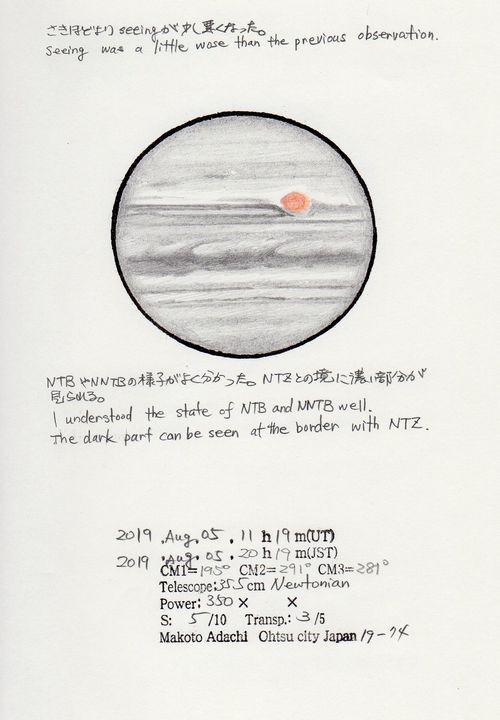 さきほどより seeingが少し悪くなった。
Seeing was a little wose than the previous observation.
NTBやNNTBの様子がよく分かった。NTZとの境に濃い部分が
見られる。
I understood the state of NTB and NNTB well.
The dark part can be seen at the border with NTZ.
2019 .Aug. 05 . 11 h 19 m(UT)
2019 .Aug. 05 . 20 h 19 m(JST)
CM1=195° CM2=291° CM3=281°
Telescope:355cm Newtonian
Power: 350 × ×
S: 5 /10 Transp.: 3 /5
Makoto Adachi Ohtsu city Japan 19-74